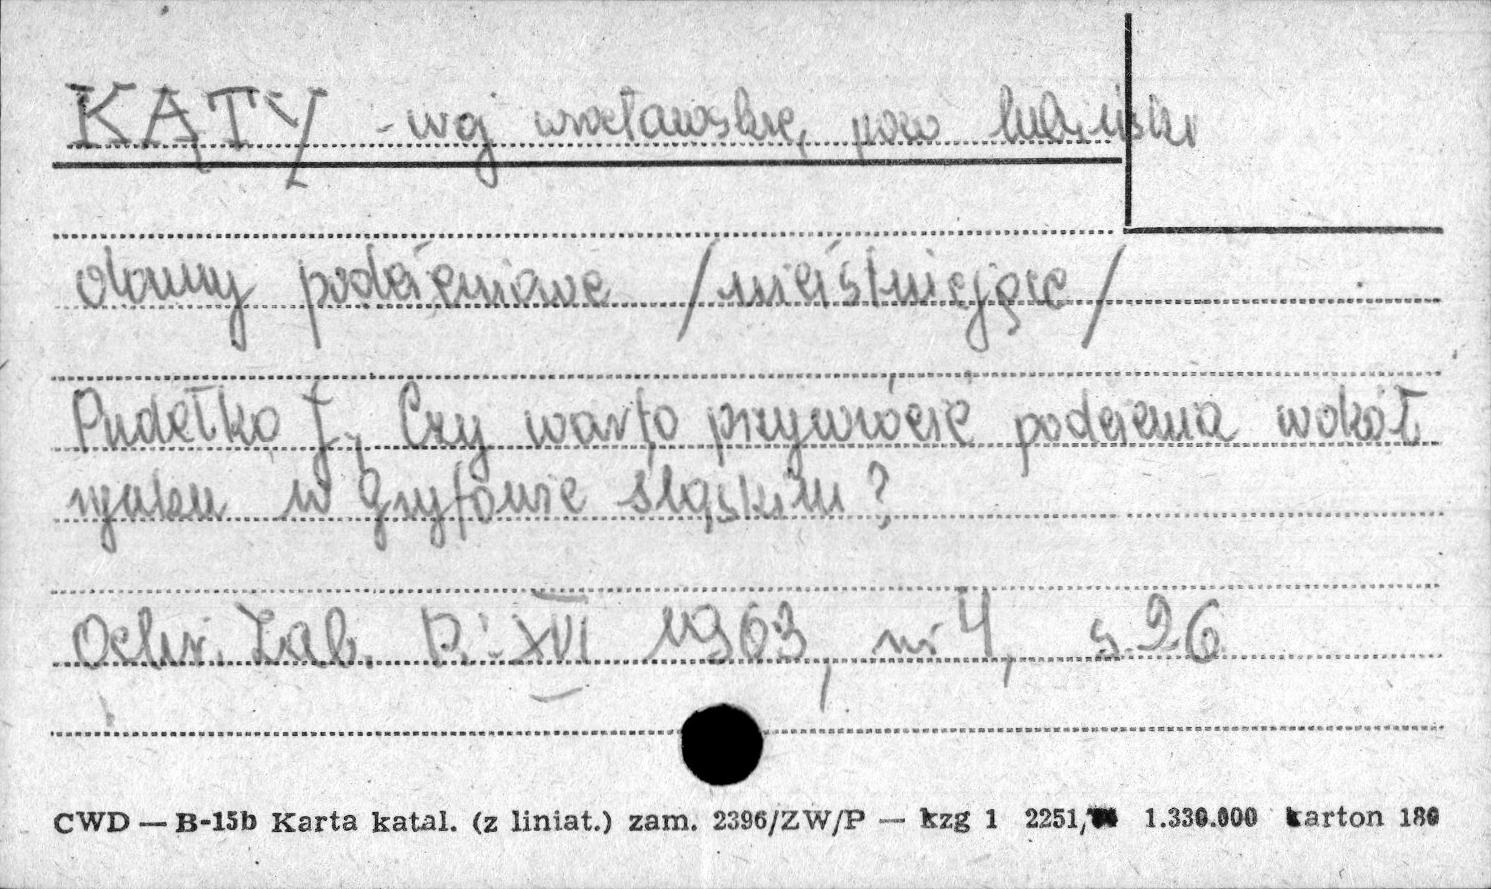 KĄTY - woj wrocławskie, pow lubiński
domy podcieniowe /nieistniejące/
Pudełko J., Czy warto przywrócić podcienia wokół
rynku w Gryfowie Śląskim?
Ochr. Zab. R: XVI 1963, nr 4, s. 26
CWD — B-15b Karta katal. (z liniat.) zam. 2396/ZW/P — kzg 1 2251, 1.330.000 karton 180